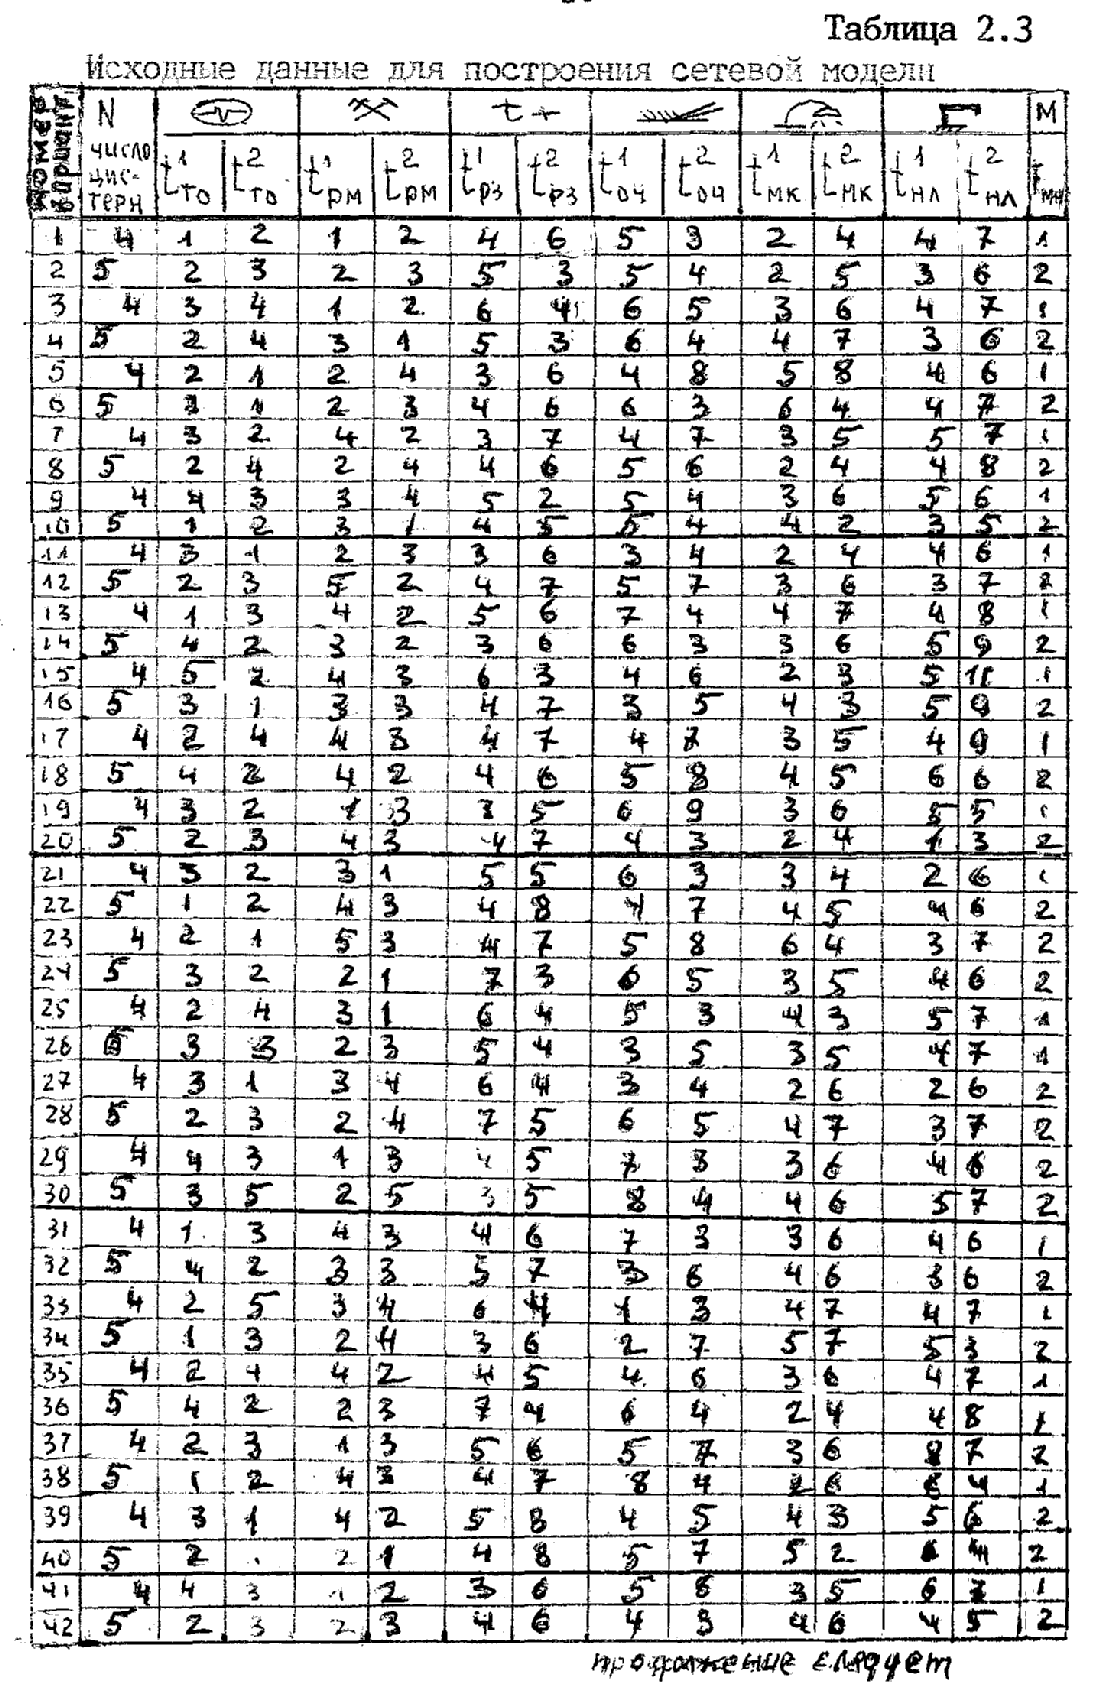 Таблица 2.3
Исходные данные для построения сетевой модели
Номер варианта N число цистерн t¹то t²то t¹рм t²рм t¹рз t²рз t¹оч t²оч t¹мк t²мк t¹нл t²нл М
1 4 1 2 1 2 4 6 5 3 2 4 4 7 1
2 5 2 3 2 3 5 3 5 4 2 5 3 6 2
3 4 3 4 1 2 6 4 6 5 3 6 4 7 1
4 5 2 4 3 1 5 3 6 4 4 7 3 6 2
5 4 2 1 2 4 3 6 4 8 5 8 4 6 1
6 5 3 1 2 3 4 6 6 3 6 4 4 7 2
7 4 3 2 4 2 3 7 4 7 3 5 5 7 1
8 5 2 4 2 4 4 6 5 6 2 4 4 8 2
9 4 4 3 3 4 5 2 5 4 3 6 5 6 1
10 5 1 2 3 1 4 5 5 4 4 2 3 5 2
11 4 3 1 2 3 3 6 3 4 2 4 4 6 1
12 5 2 3 5 2 4 7 5 7 3 6 3 7 2
13 4 1 3 4 2 5 6 7 4 4 7 4 8 1
14 5 4 2 3 2 3 6 6 3 3 6 5 9 2
15 4 5 2 4 3 6 3 4 6 2 3 5 1
16 5 3 1 3 3 4 7 3 5 4 3 5 9 2
17 4 2 4 4 3 4 7 4 7 3 5 4 9 1
18 5 4 2 4 2 4 6 5 8 4 5 6 6 2
19 4 3 2 1 3 3 5 6 9 3 6 5 5 1
20 5 2 3 4 3 4 7 4 3 2 4 1 3 2
21 4 3 2 3 1 5 5 6 3 3 4 2 6 1
22 5 1 2 4 3 4 8 4 7 4 5 4 6 2
23 4 2 1 5 3 4 7 5 8 6 4 3 7 2
24 5 3 2 2 1 7 3 6 5 3 5 4 6 2
25 4 2 4 3 1 6 4 5 3 4 3 5 7 1
26 5 3 3 2 3 5 4 3 5 3 5 4 7 1
27 4 3 1 3 4 6 4 3 4 2 6 2 6 2
28 5 2 3 2 4 7 5 6 5 4 7 3 7 2
29 4 4 3 1 3 4 5 7 3 3 6 4 6 2
30 5 3 5 2 5 3 5 8 4 4 6 5 7 2
31 4 1 3 4 3 4 6 7 3 3 6 4 6 1
32 5 4 2 3 3 5 7 3 6 4 6 3 6 2
33 4 2 5 3 4 6 4 1 3 4 7 4 7 1
34 5 1 3 2 4 3 6 2 7 5 7 5 3 2
35 4 2 4 4 2 4 5 4 6 3 6 4 7 1
36 5 4 2 2 3 7 4 6 4 2 4 4 8 1
37 4 2 3 1 3 5 6 5 7 3 6 8 7 2
38 5 1 2 4 3 4 7 8 4 2 6 6 4 1
39 4 3 1 4 2 5 8 4 5 4 3 5 6 2
40 5 2 2 1 4 8 5 7 5 2 6 4 2
41 4 4 3 1 2 3 6 5 6 3 5 6 7 1
42 5 2 3 2 3 4 6 4 3 4 6 4 5 2
продолжение следует